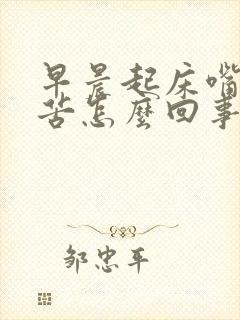 早晨起床嘴
苦怎麼回事
邹忠平